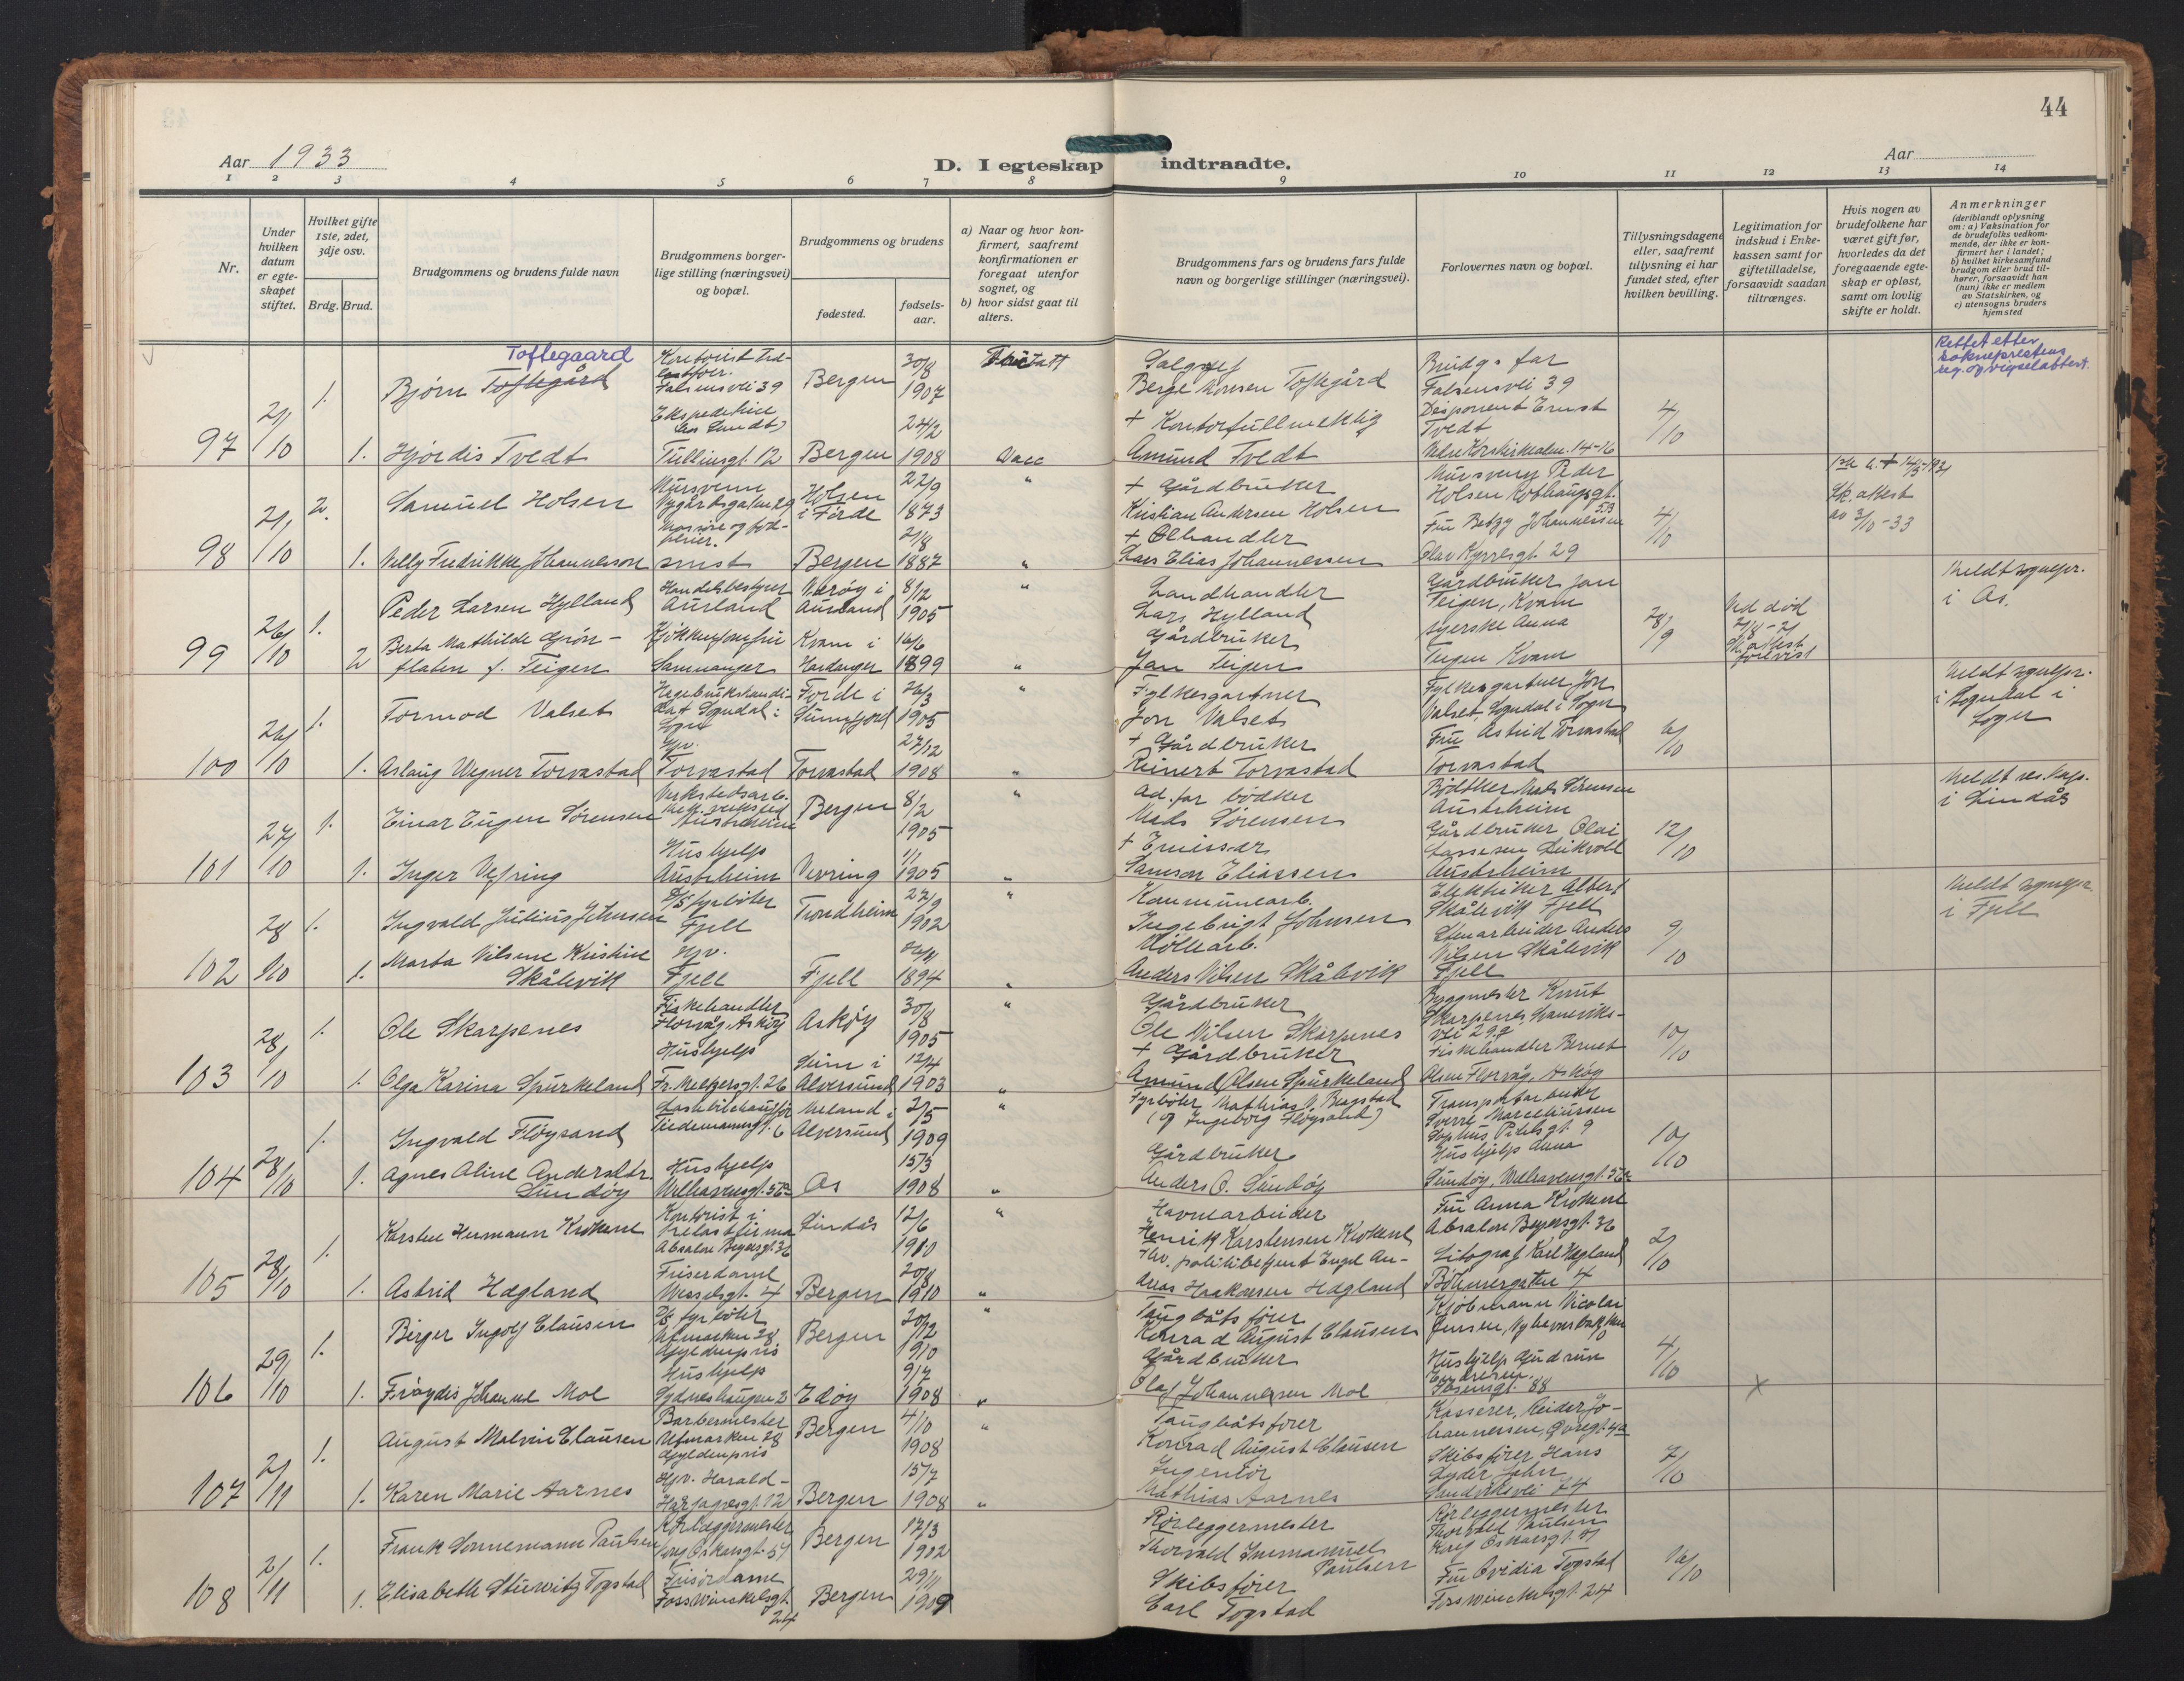 44
Aar 1933
D. I egteskap indtraadte.
Aar
1 2 3 4 5 6 7 8 9 10 11 12 13 14
Nr.
Under hvilken datum er egteskapet stiftet.
Hvilket gifte 1ste, 2det, 3dje osv.
Brdg. Brud.
Brudgommens og brudens fulde navn
Brudgommens borgerlige stilling (næringsvei) og bopæl.
Brudgommens og brudens
fødested.
fødselsaar.
a) Naar og hvor konfirmert, saafremt konfirmationen er foregaat utenfor sognet, og
b) hvor sidst gaat til alters.
Brudgommens fars og brudens fars fulde navn og borgerlige stillinger (næringsvei).
Forlovernes navn og bopæl.
Tillysningsdagene eller, saafremt tillysning ei har fundet sted, efter hvilken bevilling.
Legitimation for indskud i Enkekassen samt for giftetilladelse, forsaavidt saadan tiltrænges.
Hvis nogen av brudefolkene har været gift før, hvorledes da det foregaaende egteskap er opløst, samt om lovlig skifte er holdt.
Anmerkninger
(deriblandt oplysning om: a) Vaksination for de brudefolks vedkommende, der ikke er konfirmert her i landet; b) hvilket kirkesamfund brudgom eller brud tilhører, forsaavidt han (hun) ikke er medlem av Statskirken, og c) utensogns bruders hjemsted
97 21/10
1. Bjørn Toftegård Toftegaard
Falsensvei 39
Bergen 30/8 1907
Berge Monsen Toftegård
Brudg. far
Falsensvei 39
Rettet etter
sokneprestens
1. Hjørdis Tvedt
Tullinsgt. 12 Bergen 24/2 1908 Vacc
+ Kontorfullmektig
Amund Tvedt
Disponent Ernst
Tvedt
4/10
98 21/10
2. Samuel Holsen
Nygårdsgaten 29
Holsen i Førde 22/9 1873 "
+ Gårdbruker
Kristian Andersen Holsen
Mursvenn Peder
Holsen
Sk. attest
av 3/10-33
1. Nelly Fredrikke Johannessen
smst Bergen 21/8 1887 "
+ Ølhandler
Lars Elias Johannessen
Fru Betzy Johannessen
Olav Kyrresgt. 29
4/10
99 26/10
1. Peder Larsen Hylland
Handelsbestyrer
Aurland
Aurland 8/12 1905 "
Landhandler
Lars Hylland
Gårdbruker Jan
Teigen, Kvam
Meldt sognepr.
i Os.
2 Berta Mathilde Grönflaten f. Teigen
Samnanger
Kvam i Hardanger 16/6 1899 "
Gårdbruker
Jan Teigen
syerske Anna
Teigen Kvam
28/9
Ved død
Sk. attest
forevist
100 26/10
1. Tormod Valset
Sogndal i Sogn
Førde i Sunnfjord 26/3 1905 "
Fylkesgartner
Jon Valset
Fylkesgartner Jon
Valset, Sogndal i Sogn
Meldt sognepr.
i Sogndal i
Sogn
1. Aslaug Wegner Torvastad
Hjv.
Torvastad Torvastad 27/12 1908 "
+ Gårdbruker
Reinert Torvastad
Fru Astrid Torvastad
Torvastad
6/10
101 27/10
1. Einar Eugen Sørensen
Verkstedsarb.
Austrheim
Bergen 8/2 1905 "
Ad. far bødker
Mads Sørensen
Bødtker Mads Sørensen
Austrheim
Meldt res. kap.
i Lindås
1. Inger Vefring
Hushjelp
Austrheim Vevring 1/1 1905 "
+ Emissær
Samson Eliassen
Gårdbruker Olai
Lassesen
Austrheim
12/10
102 28/10
1. Ingvald Julius Johnsen
D/S fyrbøter
Fjell
Trondheim 27/9 1902 "
Kommunearb.
Ingebrigt Johnsen
Elektriker Albert
Skålevik Fjell
Meldt sognepr.
i Fjell
1. Marta Nilsine Kristine
Skålevik
Hjv.
Fjell Fjell 26/4 1894 "
Møllearb.
Anders Nilsen Skålevik
Stenarbeider Anders
Nilsen Skålevik
Fjell
9/10
103 28/10
1. Ole Skarpenes
Fiskehandler
Florvåg, Askøy
Askøy 30/8 1905 "
Gårdbruker
Ole Nilsen Skarpenes
Byggmester Knut
Skarpenes
1. Olga Karina Spurkeland
Hushjelp
Fr. Meltzersgt. 26
Seim i Alversund 12/4 1903 "
+ Gårdbruker
Amund Olsen Spurkeland
Fiskehandler Bernt
Olsen Florvåg, Askøy
10/10
104 28/10
1. Ingvald Fløysand
Lastebilchauffør
Tiedemannsgt. 6
Meland i Alversund 2/5 1909 "
Fyrbøter Mathias N. Bragstad
(og Ingeborg Fløysand)
Sverre Marcelliussen
1. Agnes Oline Andersdtr.
Sundøy
Hushjelp
Welhavensgt.
Os 15/3 1908 "
Gårdbruker
Anders O. Sundøy
Hushjelp Anna
Sundøy, Welhavensgt.
10/10
105 28/10
1. Karsten Hermann Krokene
Kontorist i
Absalon Beyersgt. 36
Lindås 12/6 1910 "
Havnearbeider
Henrik Karstensen Krokene
Fru Anna Krokene
Absalon Beyersgt. 36
1. Astrid Hagland
Friserdame
Wesselsgt. 4 Bergen 20/8 1910 "
politibetjent Engel Andreas Haakonsen Hagland
Litograf Karl Hagland
Bøhmergaten 4
2/10
106 29/10
1. Birger Ingolf Clausen
D/S fyrbøter
Utmarken 28
Gyldenpris
Bergen 20/12 1910 "
Taugbåtsfører
Konrad August Clausen
Kjøbmann Nicolai
Jensen
1. Frøydis Johanne Moe
Hushjelp
Sydneshaugen 2 Edøy 9/7 1908 "
Gårdbruker
Olaf Johannesen Moe
Hushjelp Gudrun
Endresen
Ibsensgt. 88
4/10
x
107 2/11
1. August Malvin Clausen
Barbermester
Utmarken 28
Gyldenpris
Bergen 4/10 1908 "
Taugbåtsfører
Konrad August Clausen
Kasserer, Reidar Johannessen
1. Karen Marie Aarnes
Hjv. Harald-
Hårfagresgt. 12 Bergen 15/7 1908 "
Ingeniør
Mathias Aarnes
Skibsfører Hans
Lyder John
Sandviksvei 74
7/10
108 2/11
1. Frank Sonnemann Paulsen
Rørlæggermester
Kong Oskarsgt. 57
Bergen 17/3 1902
Rørleggermester
Thorvald Immanuel
Paulsen
Rørleggermester
Thorvald Paulsen
Kong Oskarsgt. 57
1. Elisabeth Stüwitz Togstad
Frisørdame
Fosswinckelsgt.
24
Bergen 29/11 1909
Skibsfører
Carl Togstad
Fru Ovidia Togstad
Fosswinckelsgt. 24
16/10